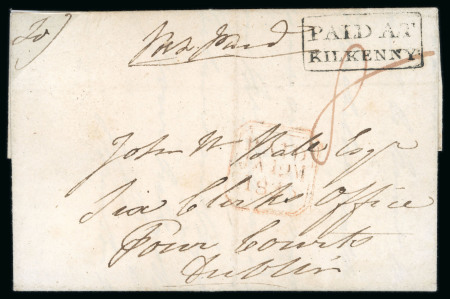 To
Post Paid
PAID AT
KILKENNY
8
John W Ball Esqr
Six Clerks Office
Four Courts
Dublin